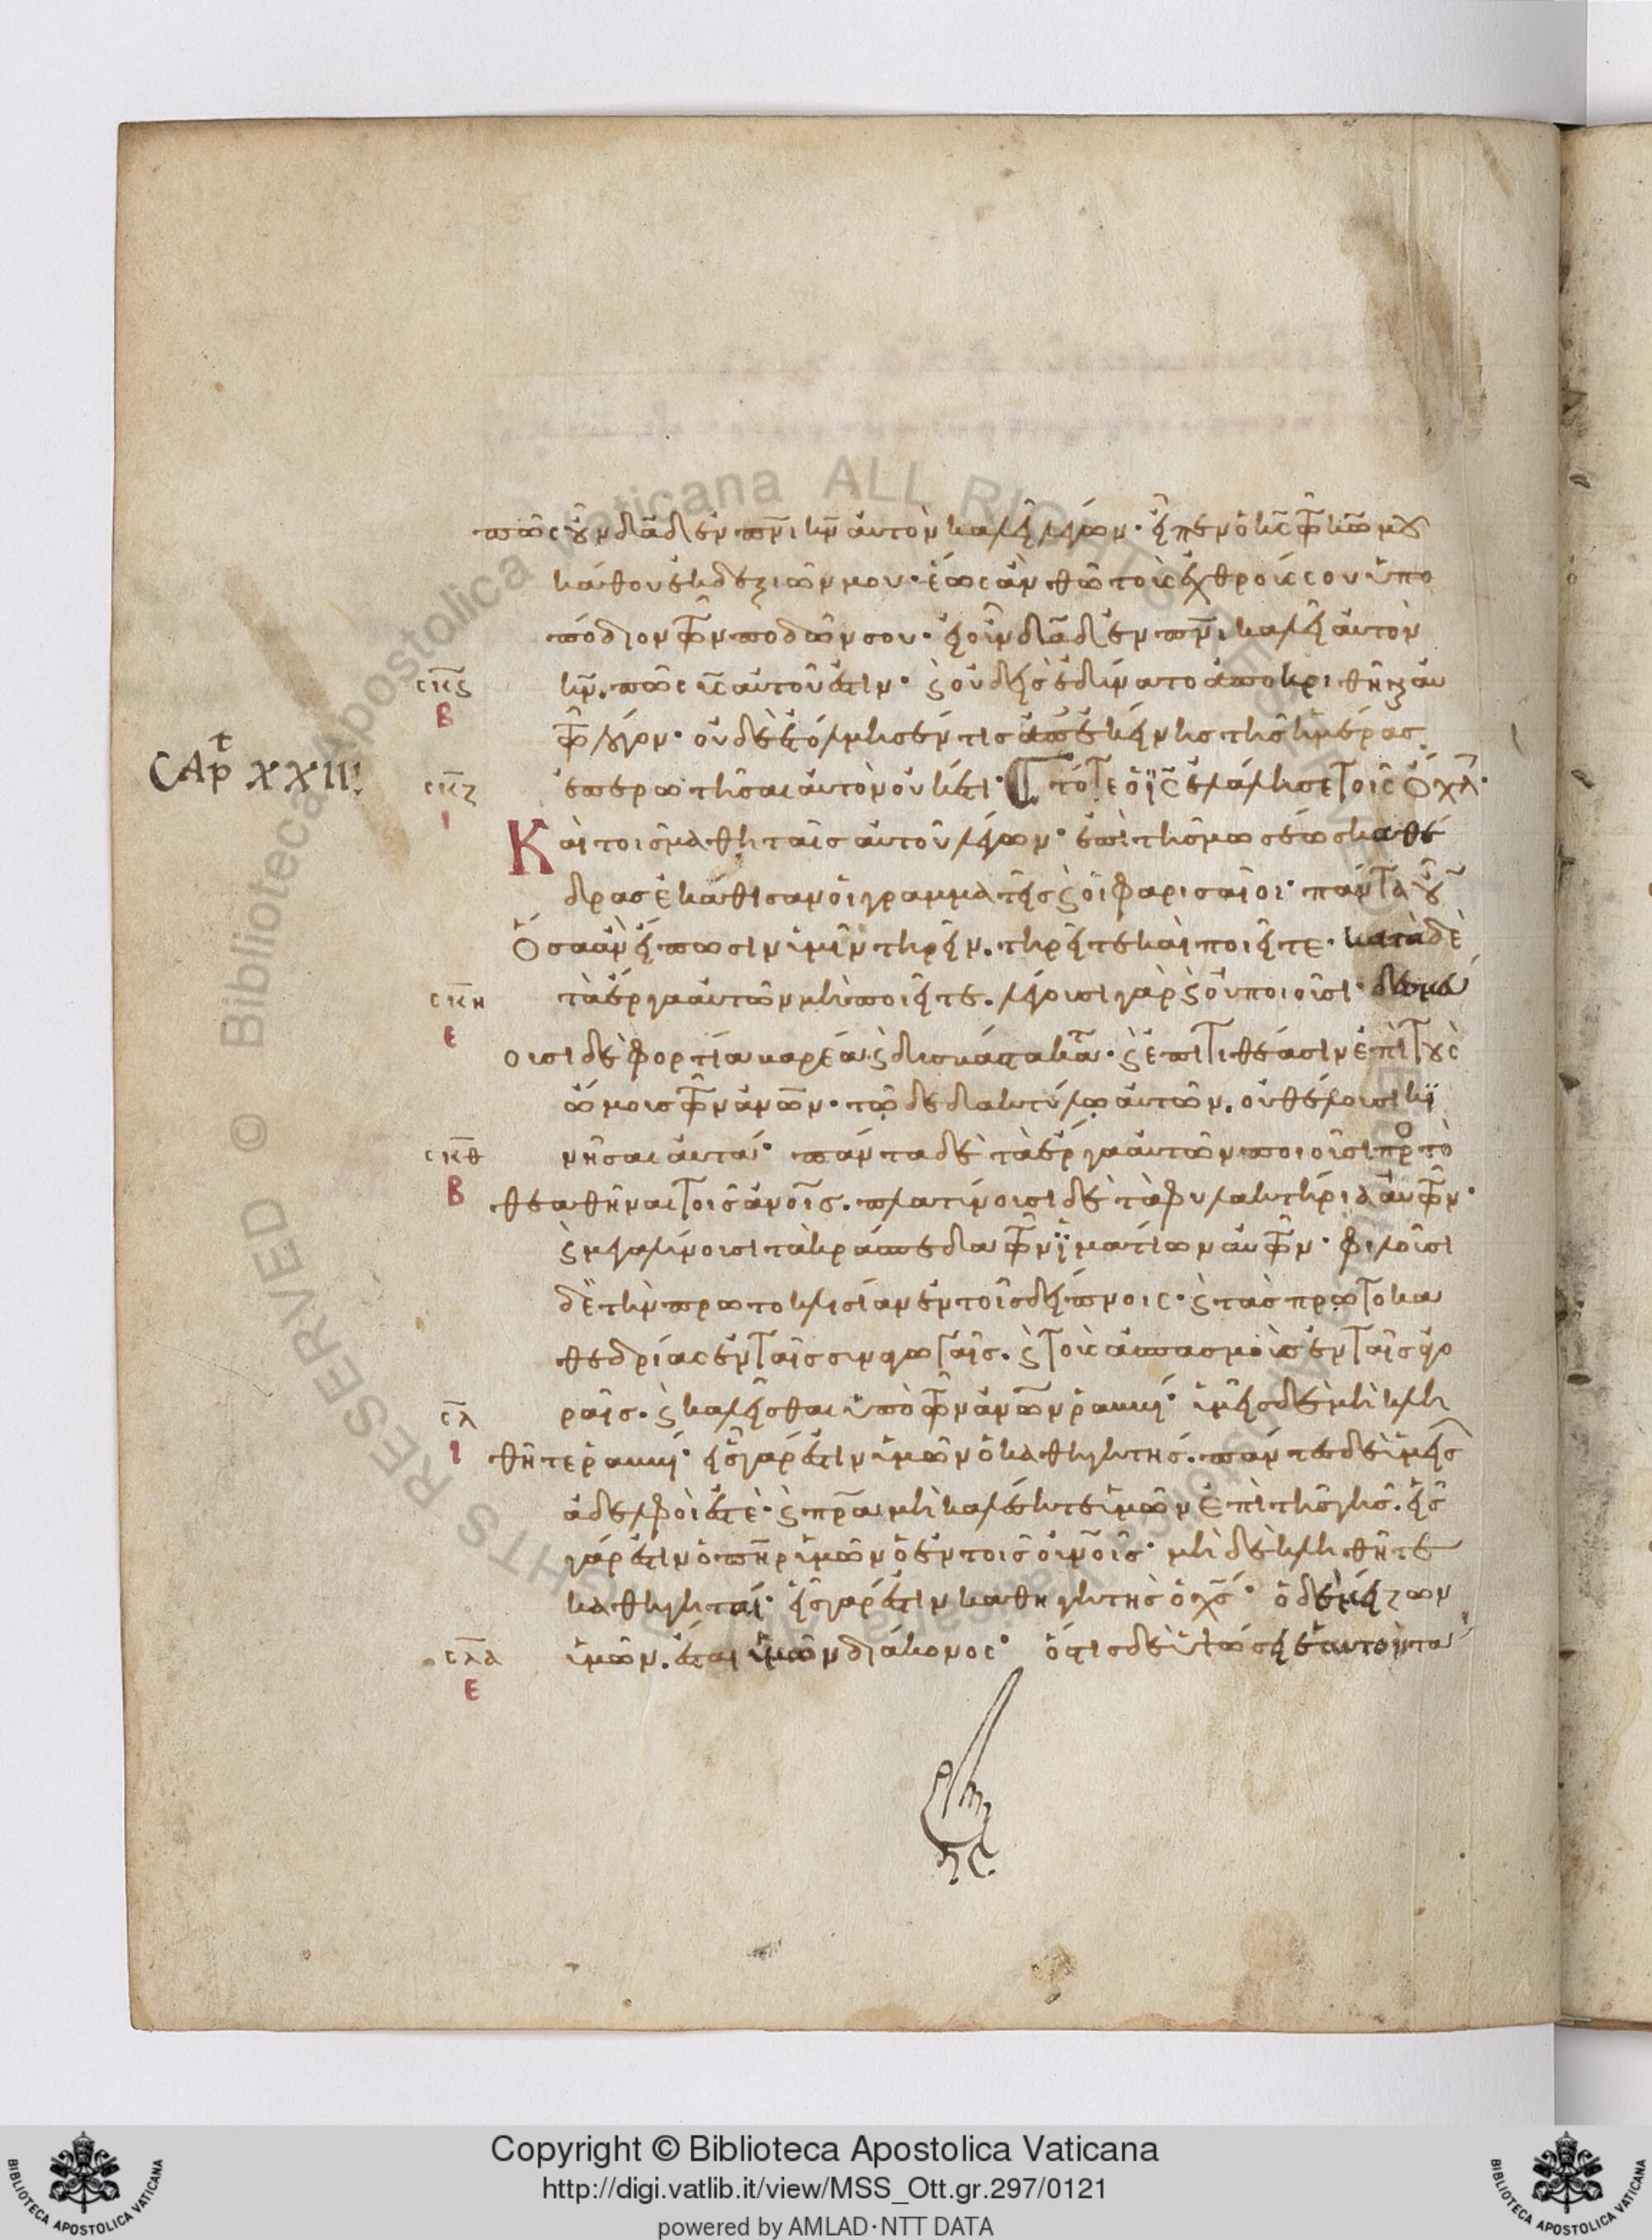 πῶς οὖν δα̅δ ἐν πν̅ι κν̅ αὐτὸν καλεῖ λέγων· εἶπεν ὁ κς̅ τῶ κω̅ μου
κάθου ἐκ δεξιῶν μου· ἕως ἂν θῶ τοὺς ἐχθρούς σου ὑπο
πόδιον τῶν ποδῶν σου· εἰ οὖν δα̅δ ἐν πν̅ι καλεῖ αὐτὸν
σκ̅ς κν̅. πῶς υς̅ αὐτοῦ ἐστιν· ϛ οὐδεὶς ἐδύνατο ἀποκριθῆναι αὐ
Β τῶ λόγον· οὐδὲ ἐτόλμησέν τις ἀπ' ἐκείνης τῆς ἡμέρας
CAP̅ XXIII
σκ̅ζ ἐπερωτῆσαι αὐτὸν οὐκέτι· τότε ὁ ις̅ ἐλάλησε τοῖς ὄχλ·
ι Καὶ τοῖς μαθηταῖς αὐτοῦ λέγων· ἐπὶ τῆς μωσέως καθέ
δρας ἐκάθισαν οἱ γραμματεῖς ϛ οἱ φαρισαῖοι· πάντα οὖν
Ὅσα ἂν εἴπωσιν ὑμῖν τηρεῖν. τηρεῖτε καὶ ποιεῖτε· κατὰ δὲ
σκ̅η τὰ ἔργα αὐτῶν μὴ ποιεῖτε. λέγουσι γὰρ ϛ οὐ ποιοῦσι· δεσμέ
Ε
ουσι δὲ φορτία βαρέα ϛ δυσβάστακτα· ϛ ἐπιτιθέασιν ἐπὶ τοὺς
ὤμους τῶν ἀνω̅ν· τῶ δὲ δακτύλω αὐτῶν. οὐ θέλουσι κι
σκ̅θ νῆσαι αὐτά· πάντα δὲ τὰ ἔργα αὐτῶν ποιοῦσι πρὸς τὸ
Β θεαθῆναι τοῖς ἀνοι̅ς. πλατύνουσι δὲ τὰ φυλακτήρια αὐτῶν·
ϛ μεγαλύνουσι τὰ κράσπεδα τῶν ἱματίων αὐτῶν· φιλοῦσι
δὲ τὴν πρωτοκλισίαν ἐν τοῖς δείπνοις· ϛ τὰς πρωτοκα
θεδρίας ἐν ταῖς συναγωγαῖς. ϛ τοὺς ἀσπασμοὺς ἐν ταῖς ἀγο
σ̅λ ραῖς. ϛ καλεῖσθαι ὑπὸ τῶν ἀνω̅ν ῥαββί· ὑμεῖς δὲ μὴ κλη
ι θῆτε ῥαββί· εἷς γάρ ἐστιν ὑμῶν ὁ καθηγητής. πάντες δὲ ὑμεῖς
ἀδελφοί ἐστέ· ϛ πρ̅α μὴ καλέσητε ὑμῶν ἐπὶ τῆς γῆς. εἷς
γάρ ἐστιν ὁ πη̅ρ ὑμῶν ὁ ἐν τοῖς οὐνοι̅ς· μὴ δὲ κληθῆτε
καθηγηταί· εἷς γάρ ἐστιν καθηγητὴς ὁ χς̅· ὁ δὲ μείζων
σλ̅α ὑμῶν. ἔσται ὑμῶν διάκονος· ὅστις δὲ ὑψώσει ἑαυτὸν τα
Ε
Copyright © Biblioteca Apostolica Vaticana
http://digi.vatlib.it/view/MSS_Ott.gr.297/0121
powered by AMLAD·NTT DATA
BIBLIOTECA APOSTOLICA VATICANA
BIBLIOTECA APOSTOLICA VATICANA